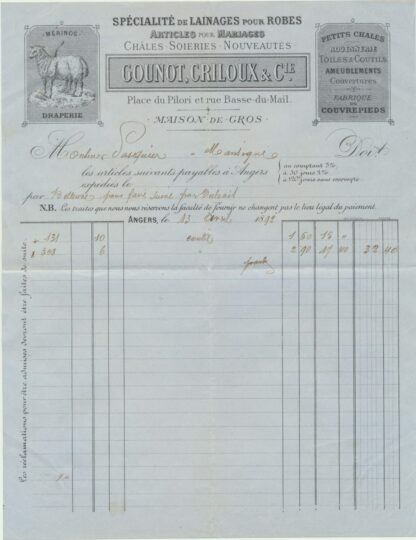 SPÉCIALITÉ DE LAINAGES POUR ROBES
ARTICLES POUR MARIAGES
CHÂLES SOIERIES NOUVEAUTÉS
GOUNOT, CRILOUX & CIE
Place du Pilori et rue Basse-du-Mail.
MAISON DE GROS
MÉRINOS
DRAPERIE
PETITS CHALES
ROUENNERIE
TOILES & COUTILS
AMEUBLEMENTS
Couvertures
FABRIQUE
DE
COUVREPIEDS
Monsieur Doit
les articles suivants payables à Angers
expédiés le
au comptant 3%
à 30 jours 2%
par
N.B. Les traites que nous nous réservons la faculté de fournir ne changent pas le lieu légal du paiement.
ANGERS, le 13 189
131 10 coutil 1 50 15 "
6 " 2 90 17 40 32 40
Les réclamations pour être admises devront être faites de suite.